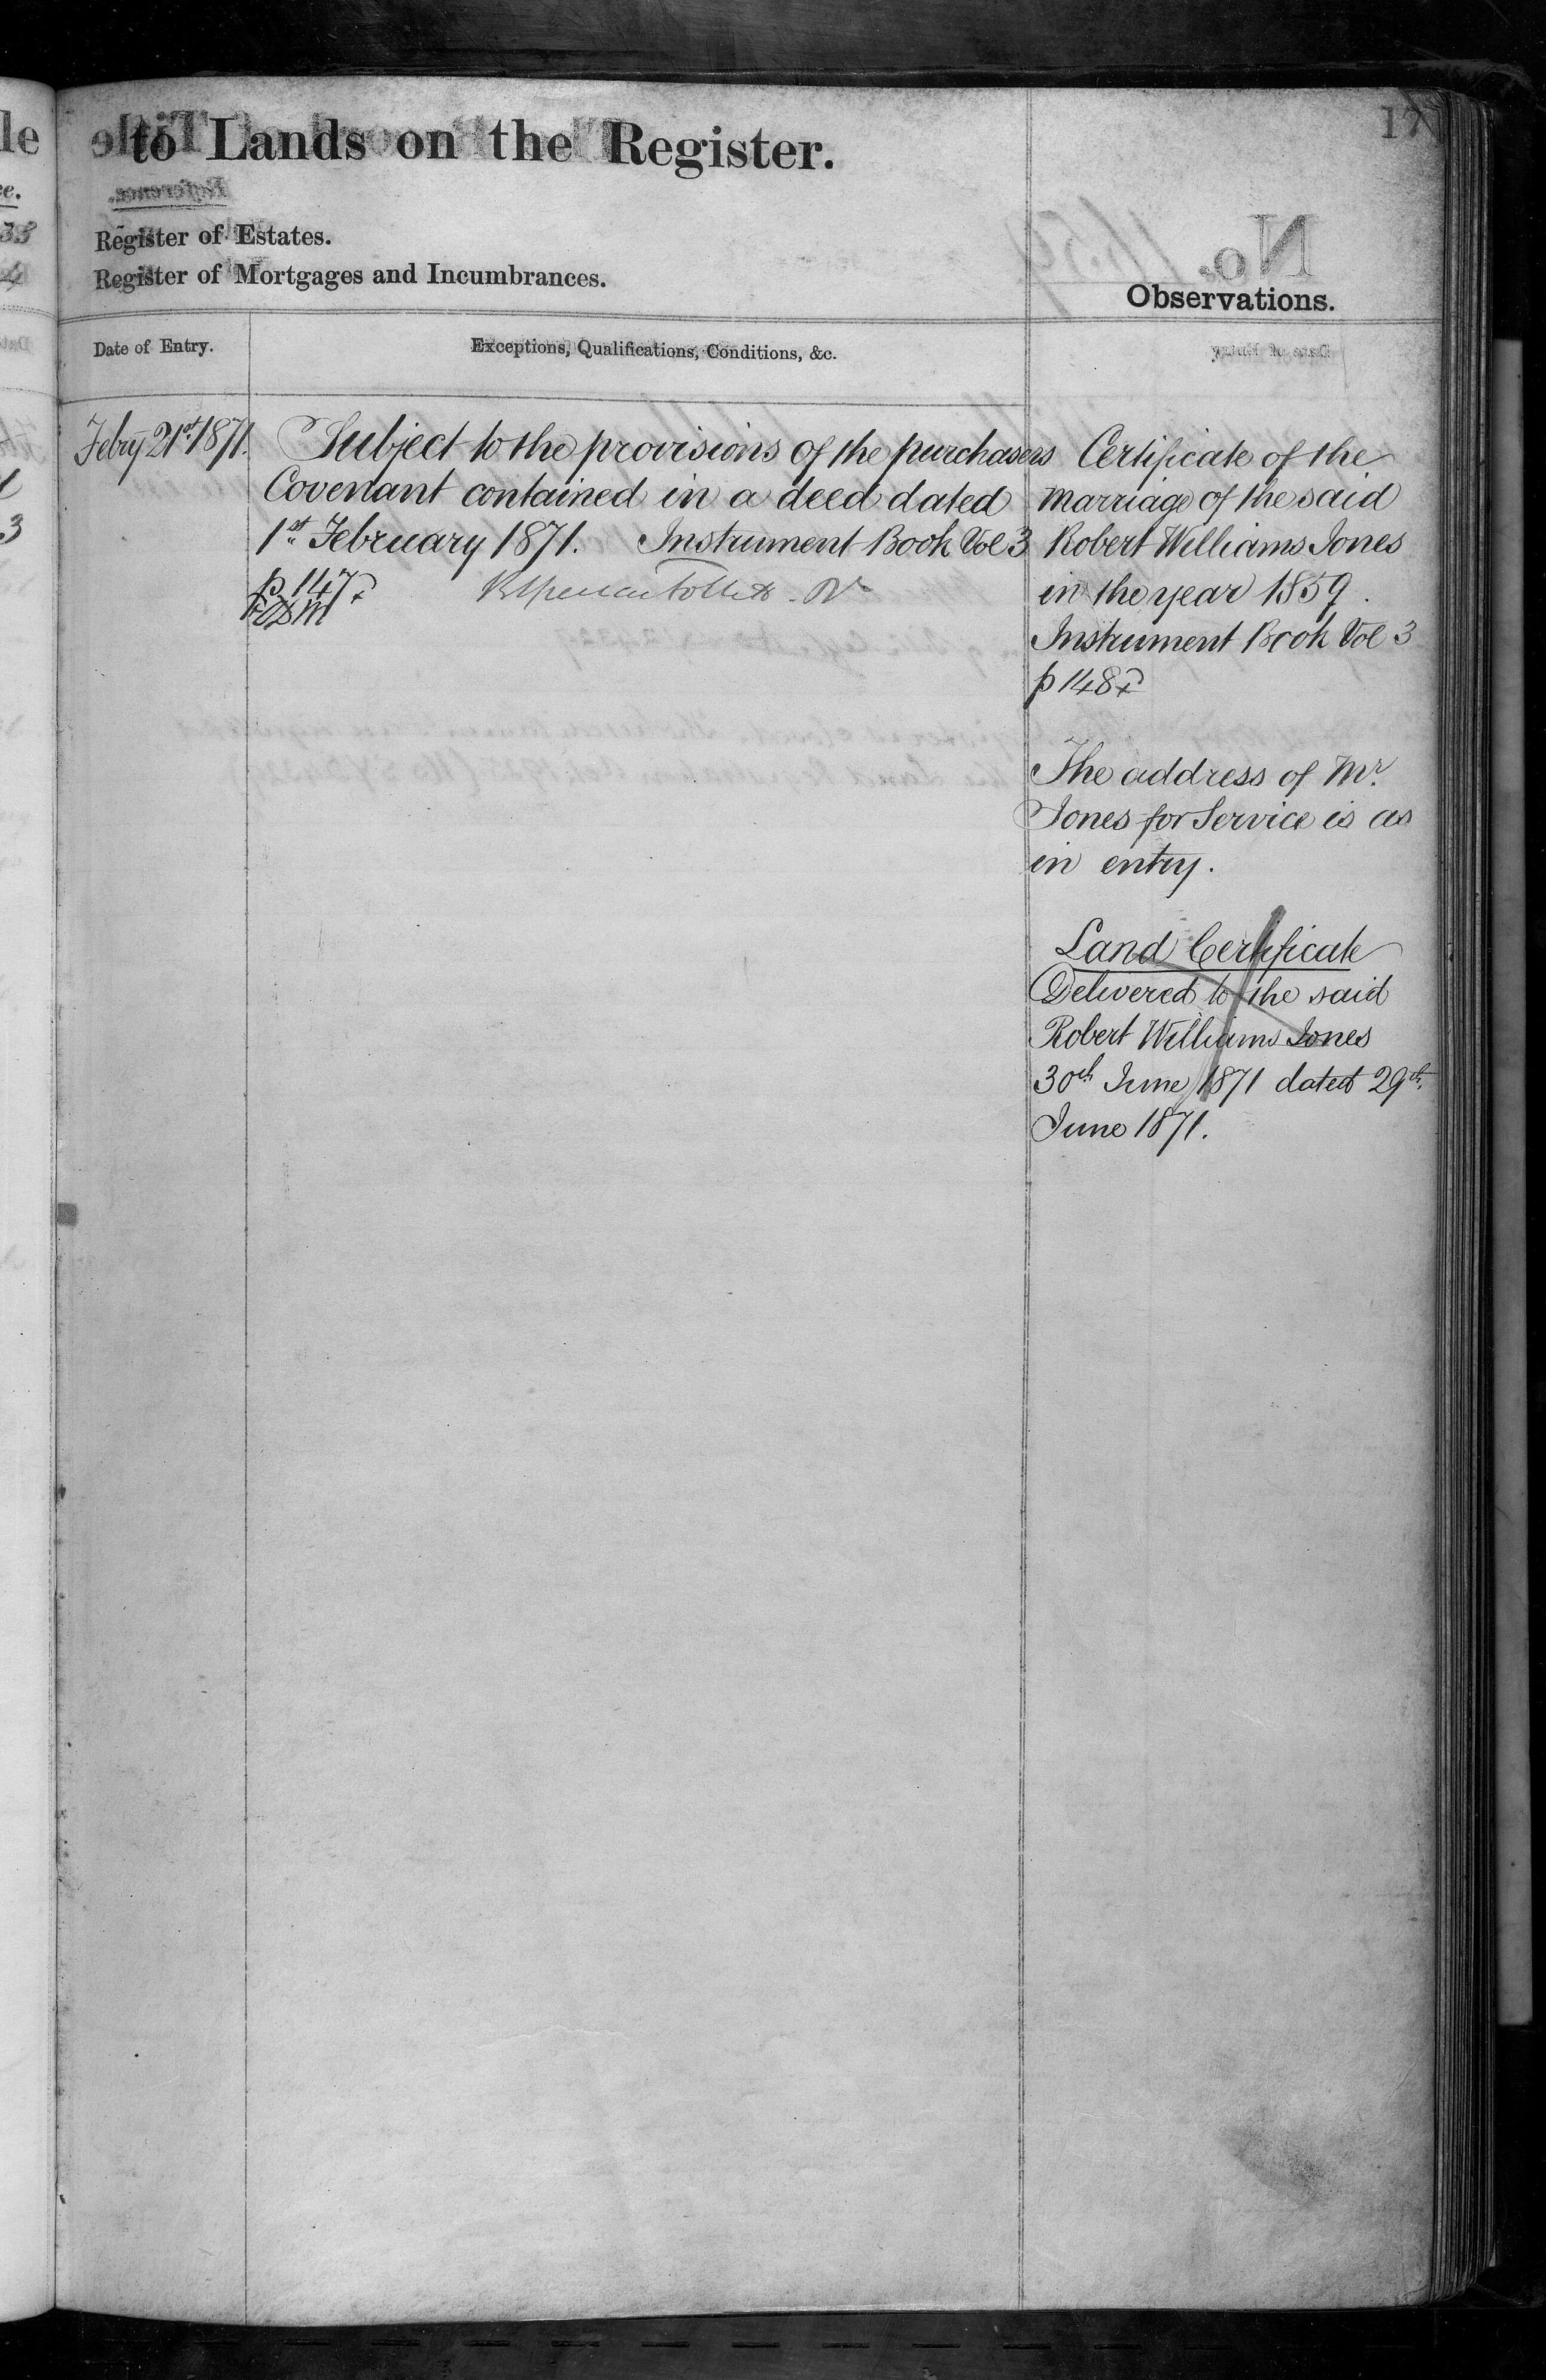 17
to Lands on the Register.
Register of Estates.
Register of Mortgages and Incumbrances.
Observations.
Date of Entry.
Exceptions, Qualifications, Conditions, &c.
Febry 21st 1871.
Subject to the provisions of the purchasers
Covenant contained in a deed dated
1st February 1871. Instrument Book Vol 3
p 147
Certificate of the
marriage of the said
Robert Williams Jones
in the year 1859.
Instrument Book Vol 3
p 148
The address of Mr.
Jones for Service is as
in entry.
Land Certificate
Delivered to the said
Robert Williams Jones
30th June 1871 dated 29th
June 1871.